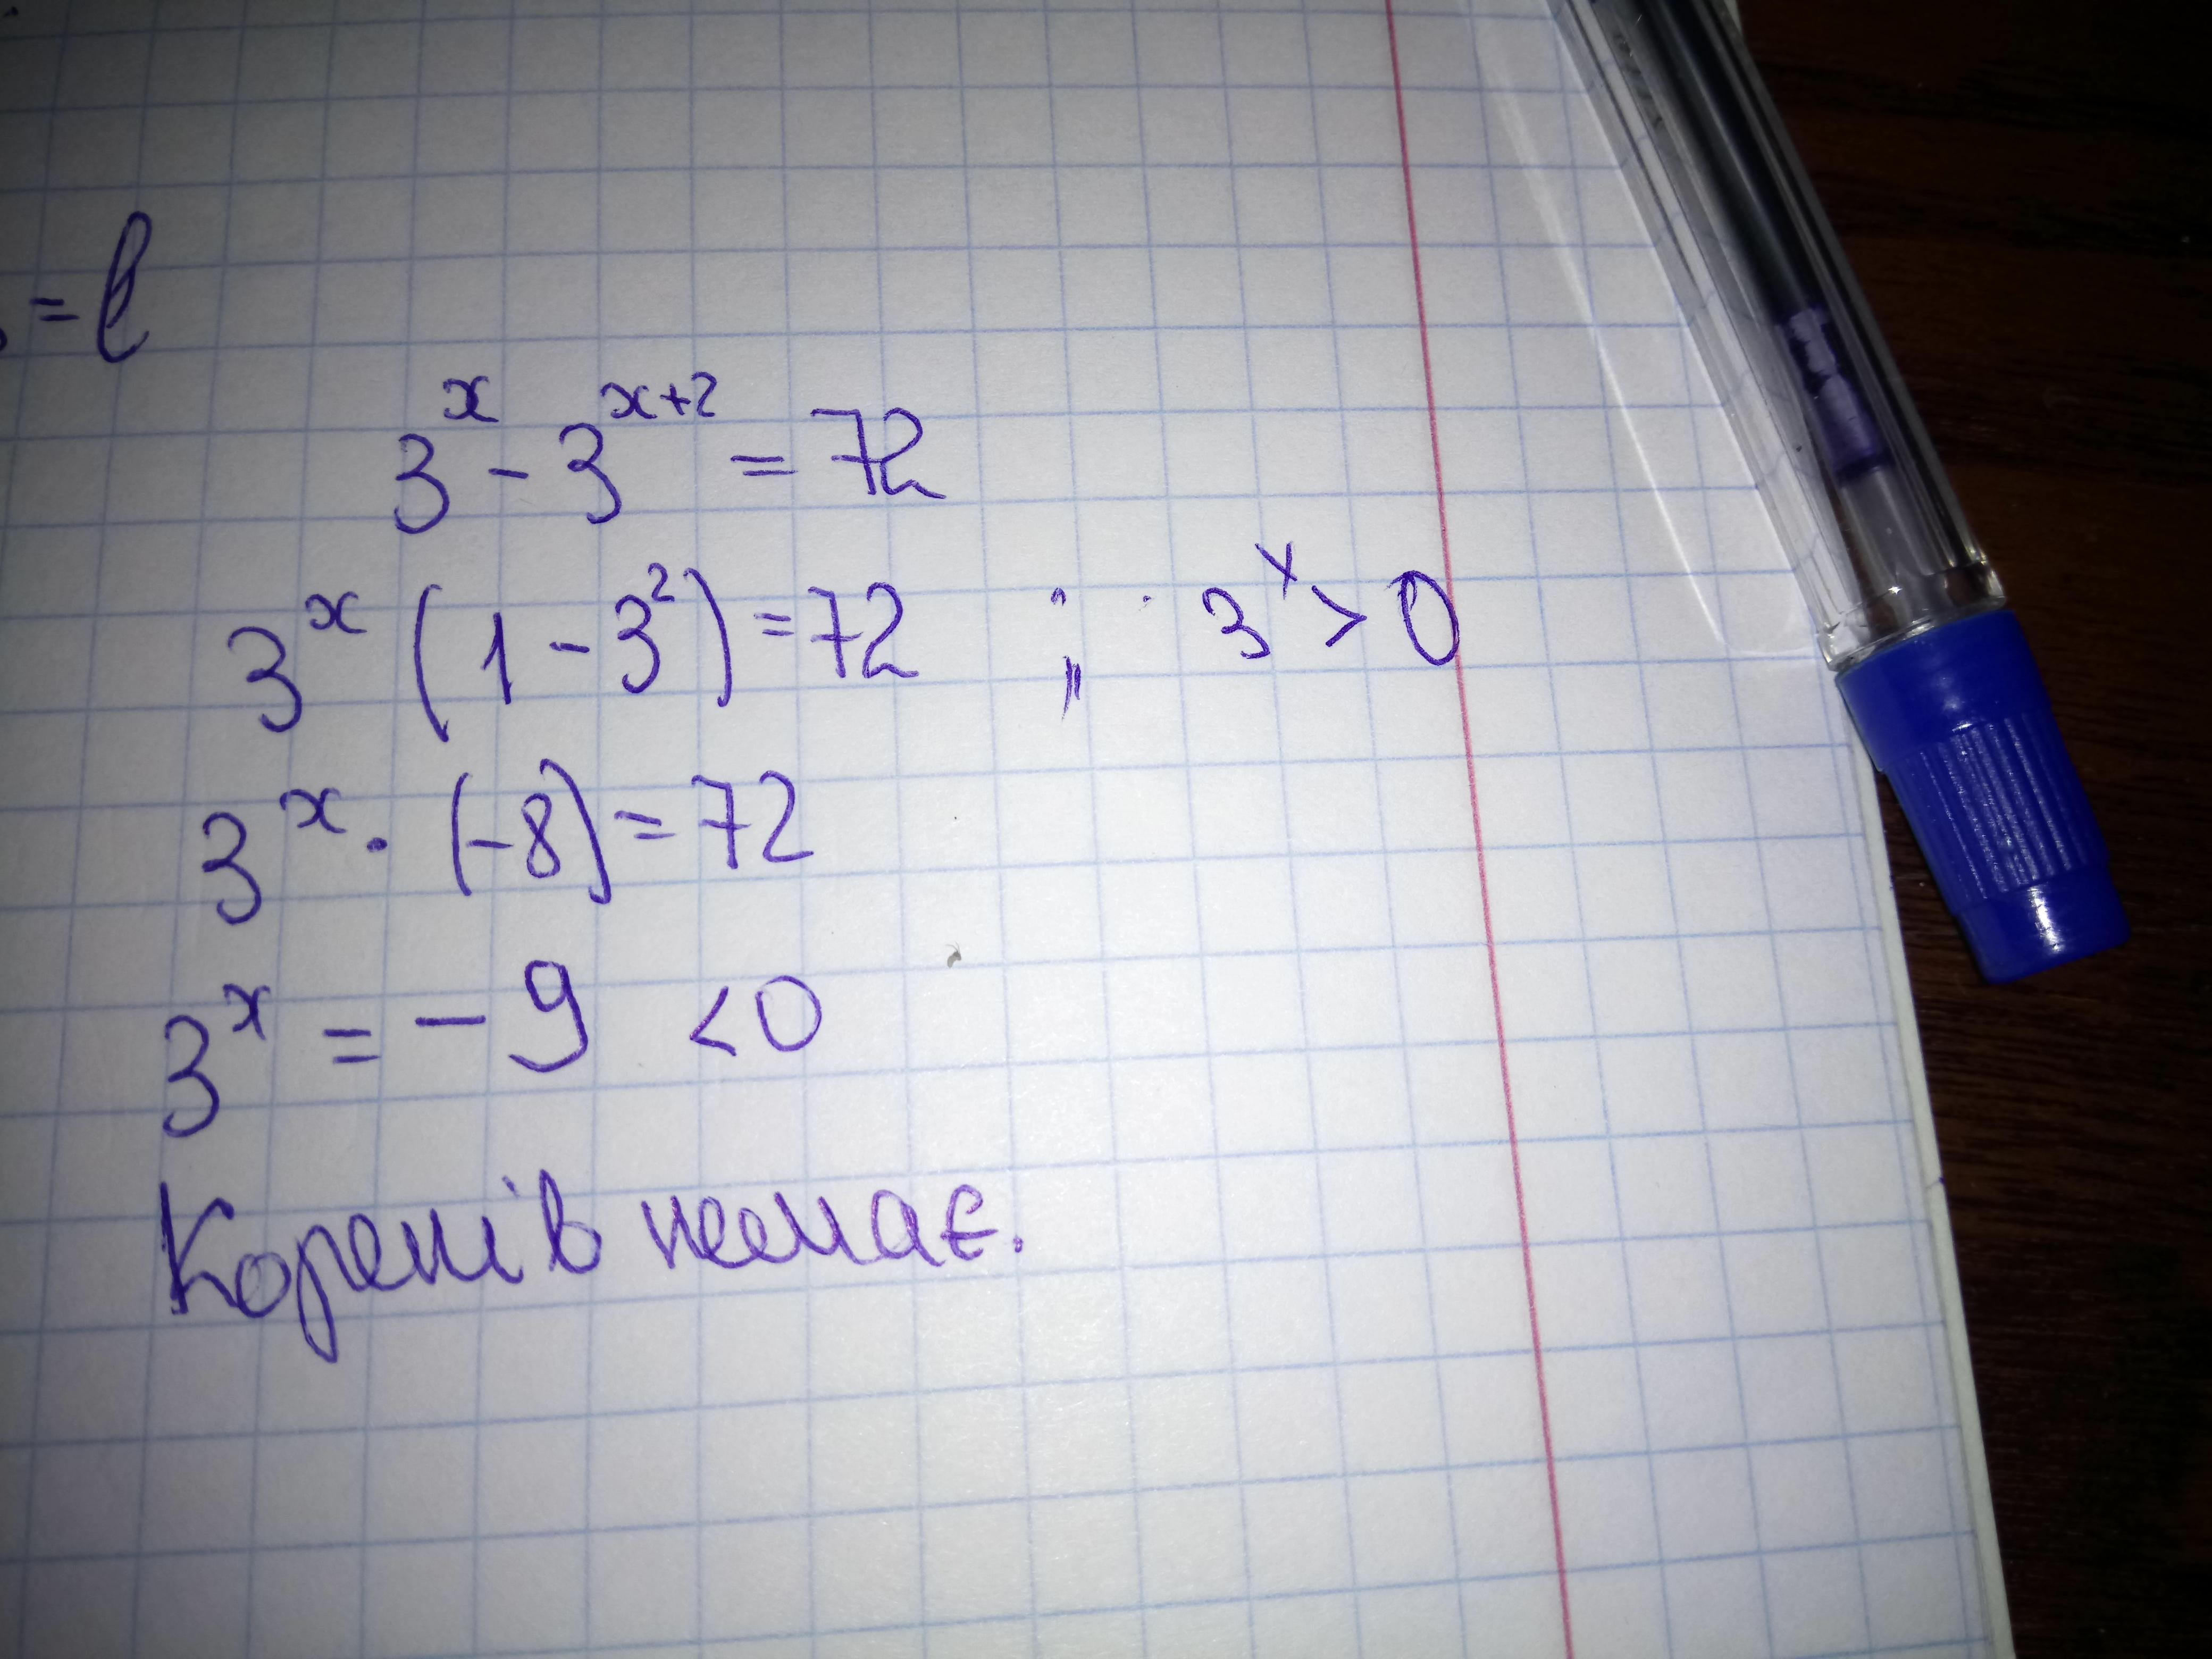 = b
3^x - 3^{x+2} = 72
3^x (1 - 3^2) = 72 ; 3^x > 0
3^x · (-8) = 72
3^x = - 9 < 0
Коренів немає.